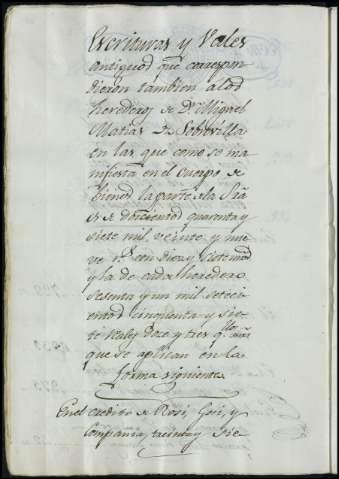 Escrituras y Vales
antiguos que correspon
dieron tambien a los
herederos de Dn. Miguel
Matias de Sobrevilla
en las que como se ma
nifiesta en el cuerpo de
bienes la parte a la
es de doscientos quarenta y
siete mil veinte y nue
ve rs. con diez y siete mrs
y la de cada heredero
sesenta y un mil seteci
entos cinquenta y sie
te reales doce y tres
que se aplican en la
forma siguiente.
En el credito de Rosi, y
Compañia, treinta y sie